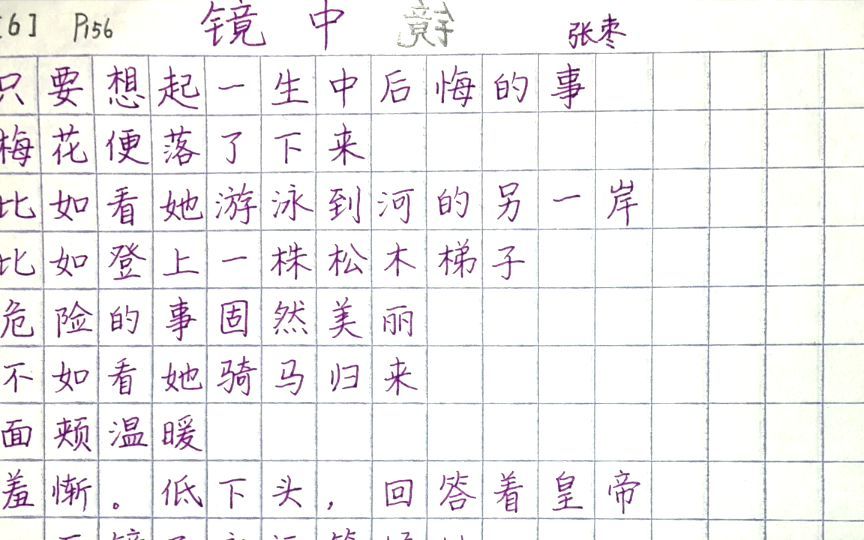 [6] P156 镜中 镜 张枣
只要想起一生中后悔的事
梅花便落了下来
比如看她游泳到河的另一岸
比如登上一株松木梯子
危险的事固然美丽
不如看她骑马归来
面颊温暖
羞惭。低下头，回答着皇帝